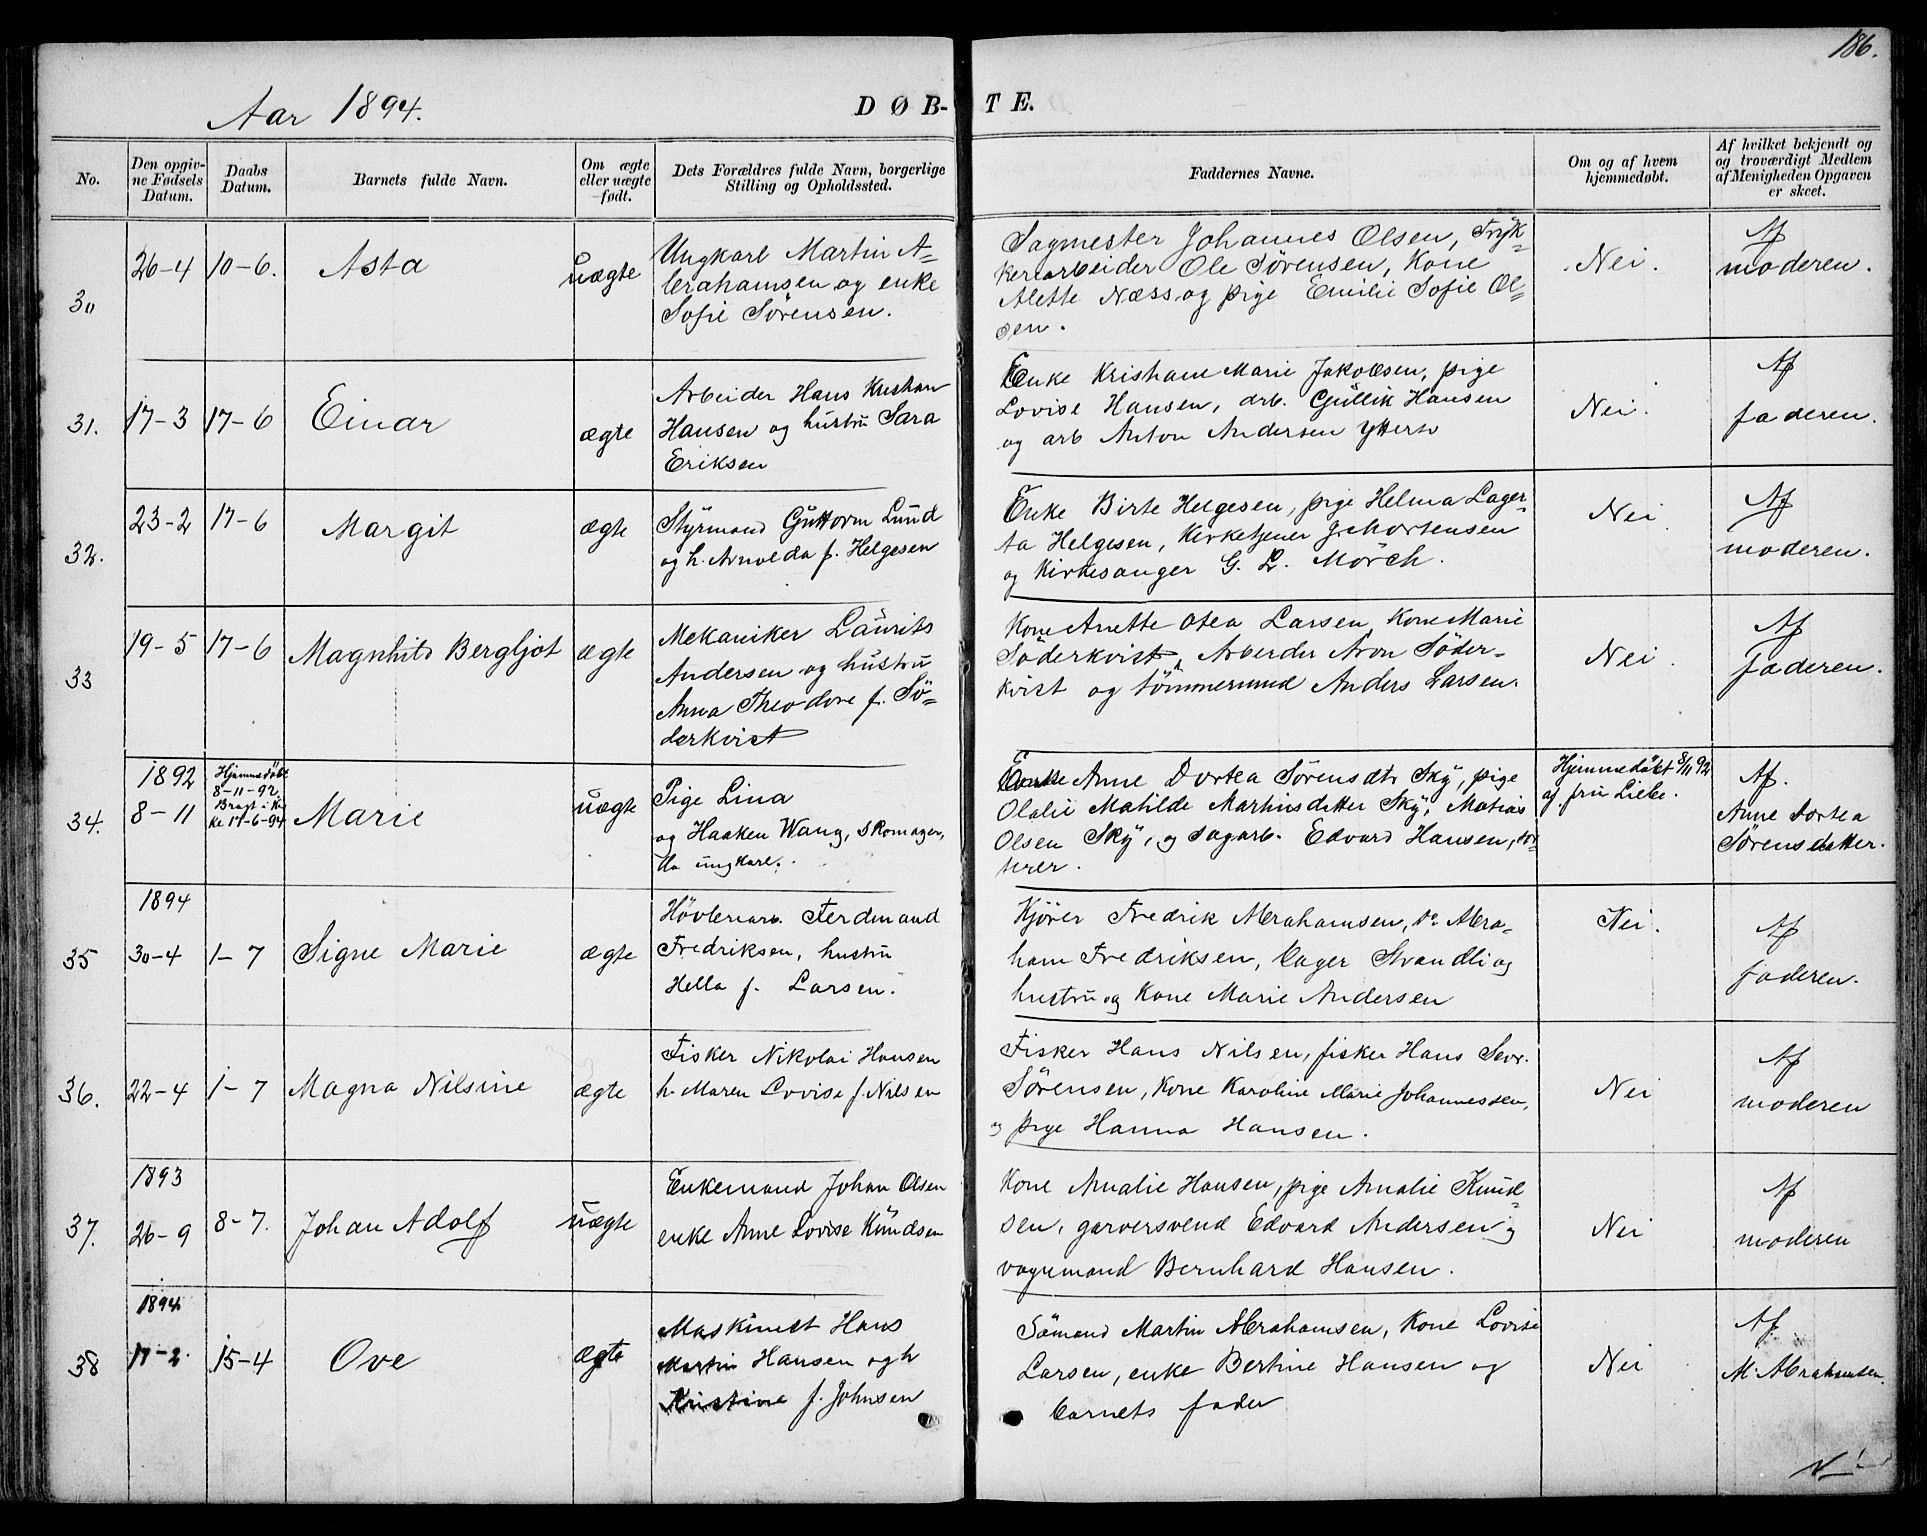 186.
Aar 1894.
DØB-TE.
No.
Den opgiv-
ne Fødsels
Datum.
Daabs
Datum.
Barnets fulde Navn.
Om ægte
eller uægte
født.
Dets Forældres fulde Navn, borgerlige
Stilling og Opholdssted.
Faddernes Navne.
Om og af hvem
hjemmedøbt.
Af hvilket bekjendt og
og troværdigt Medlem
af Menigheden Opgaven
er skeet.
30
26-4
10-6.
Asta
uægte
Ungkarl Martin A=
brahamsen og enke
Sofie Sörensen.
Sagmester Johannes Olsen, Tryk=
keriarbeider Ole Sørensen, Kone
Alette Næss og pige Emilie Sofie Ol=
sen.
Nei.
Af
moderen.
31.
17-3
17-6
Einar
ægte
Arbeider Hans Kristian
Hansen og hustru Sara
Eriksen
Enke Kristiane Marie Jakobsen, pige
Lovise Hansen, arb. Gullik Hansen
og arb Anton Andersen
Nei.
Af
faderen.
32.
23-2
17-6
Margit
ægte
Styrmand Guttorm Lund
og h. Arnolda f. Helgesen
Enke Birte Helgesen, pige Helma Lager=
ta Helgesen, Kirketjener J. Mortensen
og Kirkesanger G. L. Mörch.
Nei.
Af
moderen.
33
19-5
17-6
Magnhild Bergljot
ægte
Mekaniker Laurits
Andersen og hustru
Anna Theodore f. Sö=
derkvist
Kone Anette Otea Larsen, Kone Marie
Söderkvist, Arbeider Aron Söder=
kvist og tömmermand Anders Larsen.
Nei.
Af
faderen.
34.
1892
8-11
Hjemmedöbt
8-11-92.
Bragt i Kir
ke 17-6-94
Marie
uægte
Pige Lina
og Haaken Wang, Skomager,
do ungkarl.
Enke Anne Dortea Sørensdtr Sky, pige
Olalie Matilde Martinsdatter Sky, Matias
Olsen Sky, og sagarb. Edvard Hansen, sor=
terer.
Hjemmedøbt 8/11 92
af fru Liebe.
Af.
Anne Dortea
Sørensdatter.
35
1894
30-4
1-7
Signe Marie
ægte
Hövleriarb. Ferdinand
Fredriksen, hustru
Hella f. Larsen.
Kjører Fredrik Abrahamsen, do Abra=
ham Fredriksen, Bager Strandli og
hustru og Kone Marie Andersen
Nei.
Af
faderen.
36.
22-4
1-7
Magna Nilsine
ægte
Fisker Nikolai Hansen
h. Maren Lovise f. Nilsen
Fisker Hans Nilsen, fisker Hans Sevr.
Sørensen, Kone Karoline Marie Johannessen,
og pige Hanna Hansen.
Nei
Af
moderen
37.
1893
26-9
8-7.
Johan Adolf
uægte
Enkemand Johan Olsen
enke Anne Lovise Knudsen
Kone Amalie Hansen, pige Amalie Knud=
sen, garversvend Edvard Andersen og
vognmand Bernhard Hansen.
Nei
Af
moderen
38
1894
17-2.
15-4
Ove
ægte
Maskinist Hans
Martin Hansen og h
Kristine f. Johnsen
Sömand Martin Abrahamsen, Kone Lovise
Larsen, enke Bertine Hansen og
barnets fader
Nei
Af
M. Abrahamsen.